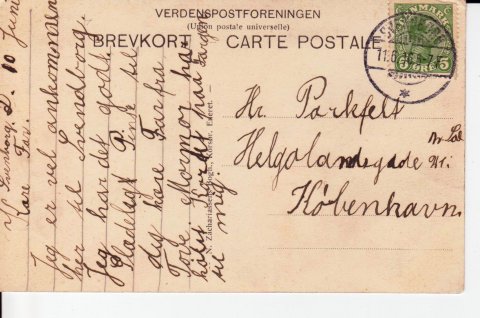 VERDENSPOSTFORENINGEN
(Union postale universelle)
BREVKORT
CARTE POSTALE
DANMARK
5 ØRE 5
Hr. Parkfelt
Helgolandsgade
København
N. Zachariasens
Svendborg D. 10 Juni
Kære Far.
Jeg er vel ankommen
her til Svendborg
Jeg har det godt.
Glædeligt Pinse til
dig kære Far fra
Tove Mormor har
til mig